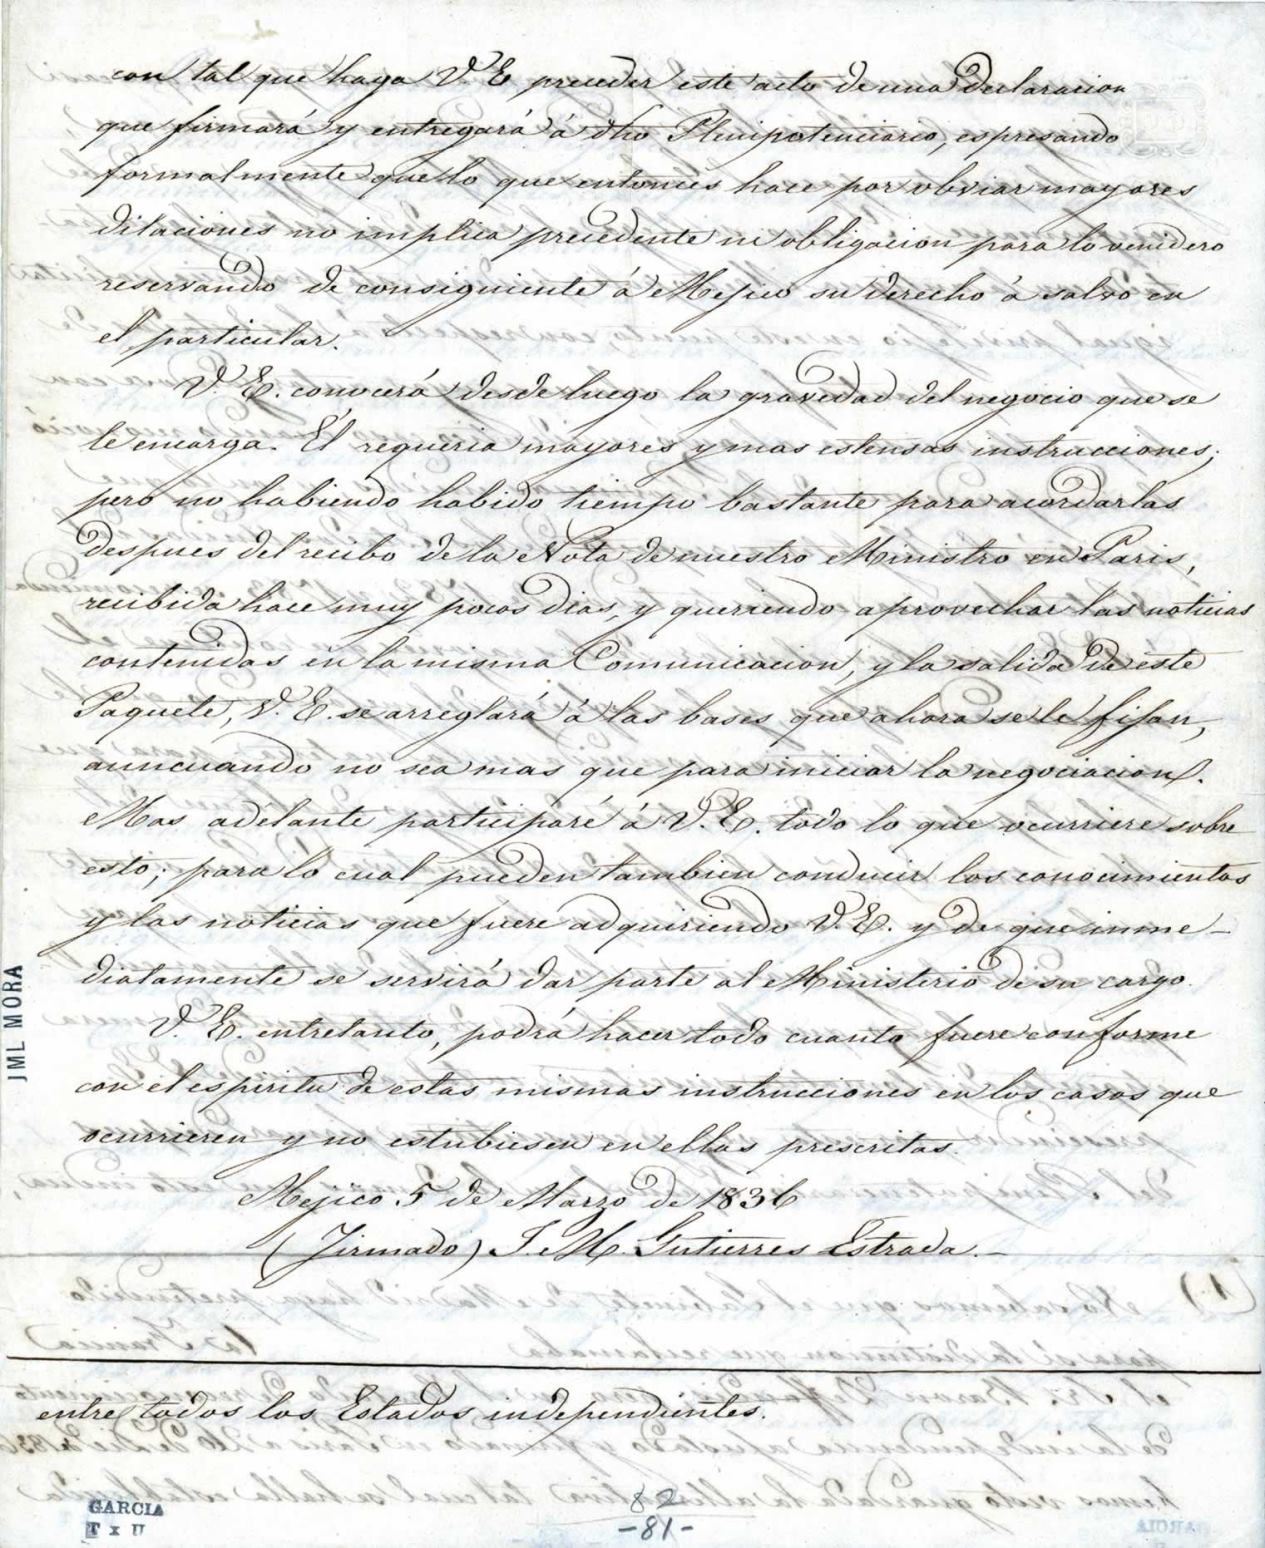 con tal que haga V.E preceder este acto de una declaracion
que firmará y entregará á dho Plenipotenciario, espresando
formalmente que lo que entonces hace por obviar mayores
dilaciones no implica precedente ni obligacion para lo venidero
reservando de consiguiente á Mejico su derecho á salvo en
el particular.
V. E. conocerá desde luego la gravedad del negocio que se
le encarga. Él requeria mayores y mas estensas instrucciones;
pero no habiendo habido tiempo bastante para acordarlas
despues del recibo de la Nota de nuestro Ministro en Paris,
recibida hace muy pocos dias, y queriendo aprovechar las noticias
contenidas en la misma Comunicacion, y la salida de este
Paquete, V. E. se arreglará á las bases que ahora se le fijan,
auncuando no sea mas que para iniciar la negociacion.
Mas adelante participaré á V. E. todo lo que ocurriere sobre
esto; para lo cual pueden tambien conducir los conocimientos
y las noticias que fuere adquiriendo V. E. y de que inme-
diatamente se servirá dar parte al Ministerio de su cargo.
V. E. entretanto, podrá hacer todo cuanto fuere conforme
con el espiritu de estas mismas instrucciones en los casos que
ocurrieren y no estubiesen en ellas prescritas.
Mejico 5 de Marzo de 1836
(Firmado) J. M. Gutierres Estrada.-
entre todos los Estados independientes.
82
-81-
GARCIA
T x U
JML MORA